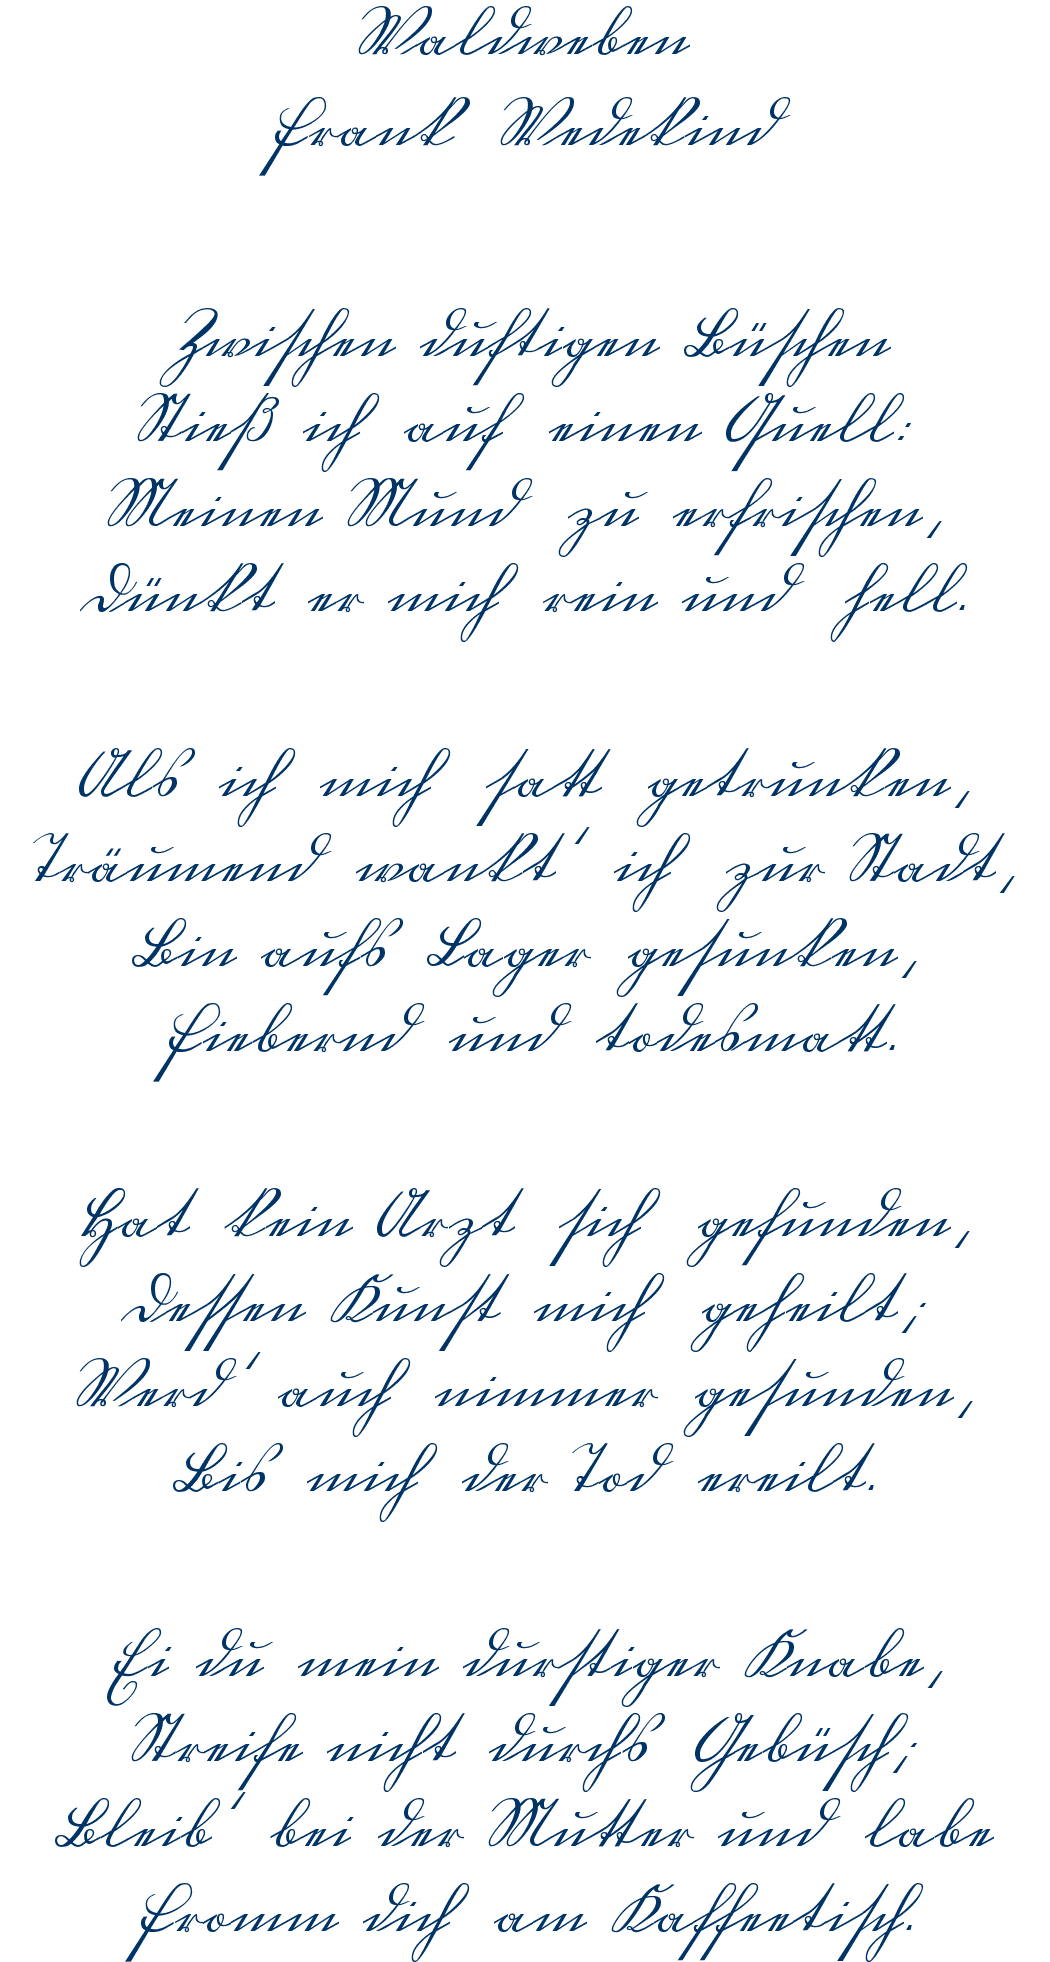 Waldweben
Frank Wedekind
Zwischen duftigen Büschen
Stieß ich auf einen Quell:
Meinen Mund zu erfrischen,
Dünkt er mich rein und hell.
Als ich mich satt getrunken,
Träumend wankt' ich zur Stadt,
Bin aufs Lager gesunken,
Fiebernd und todesmatt.
Hat kein Arzt sich gefunden,
Dessen Kunst mich geheilt;
Werd' auch nimmer gesunden,
Bis mich der Tod ereilt.
Ei du mein durstiger Knabe,
Streife nicht durchs Gebüsch;
Bleib' bei der Mutter und labe
Fromm dich am Kaffeetisch.